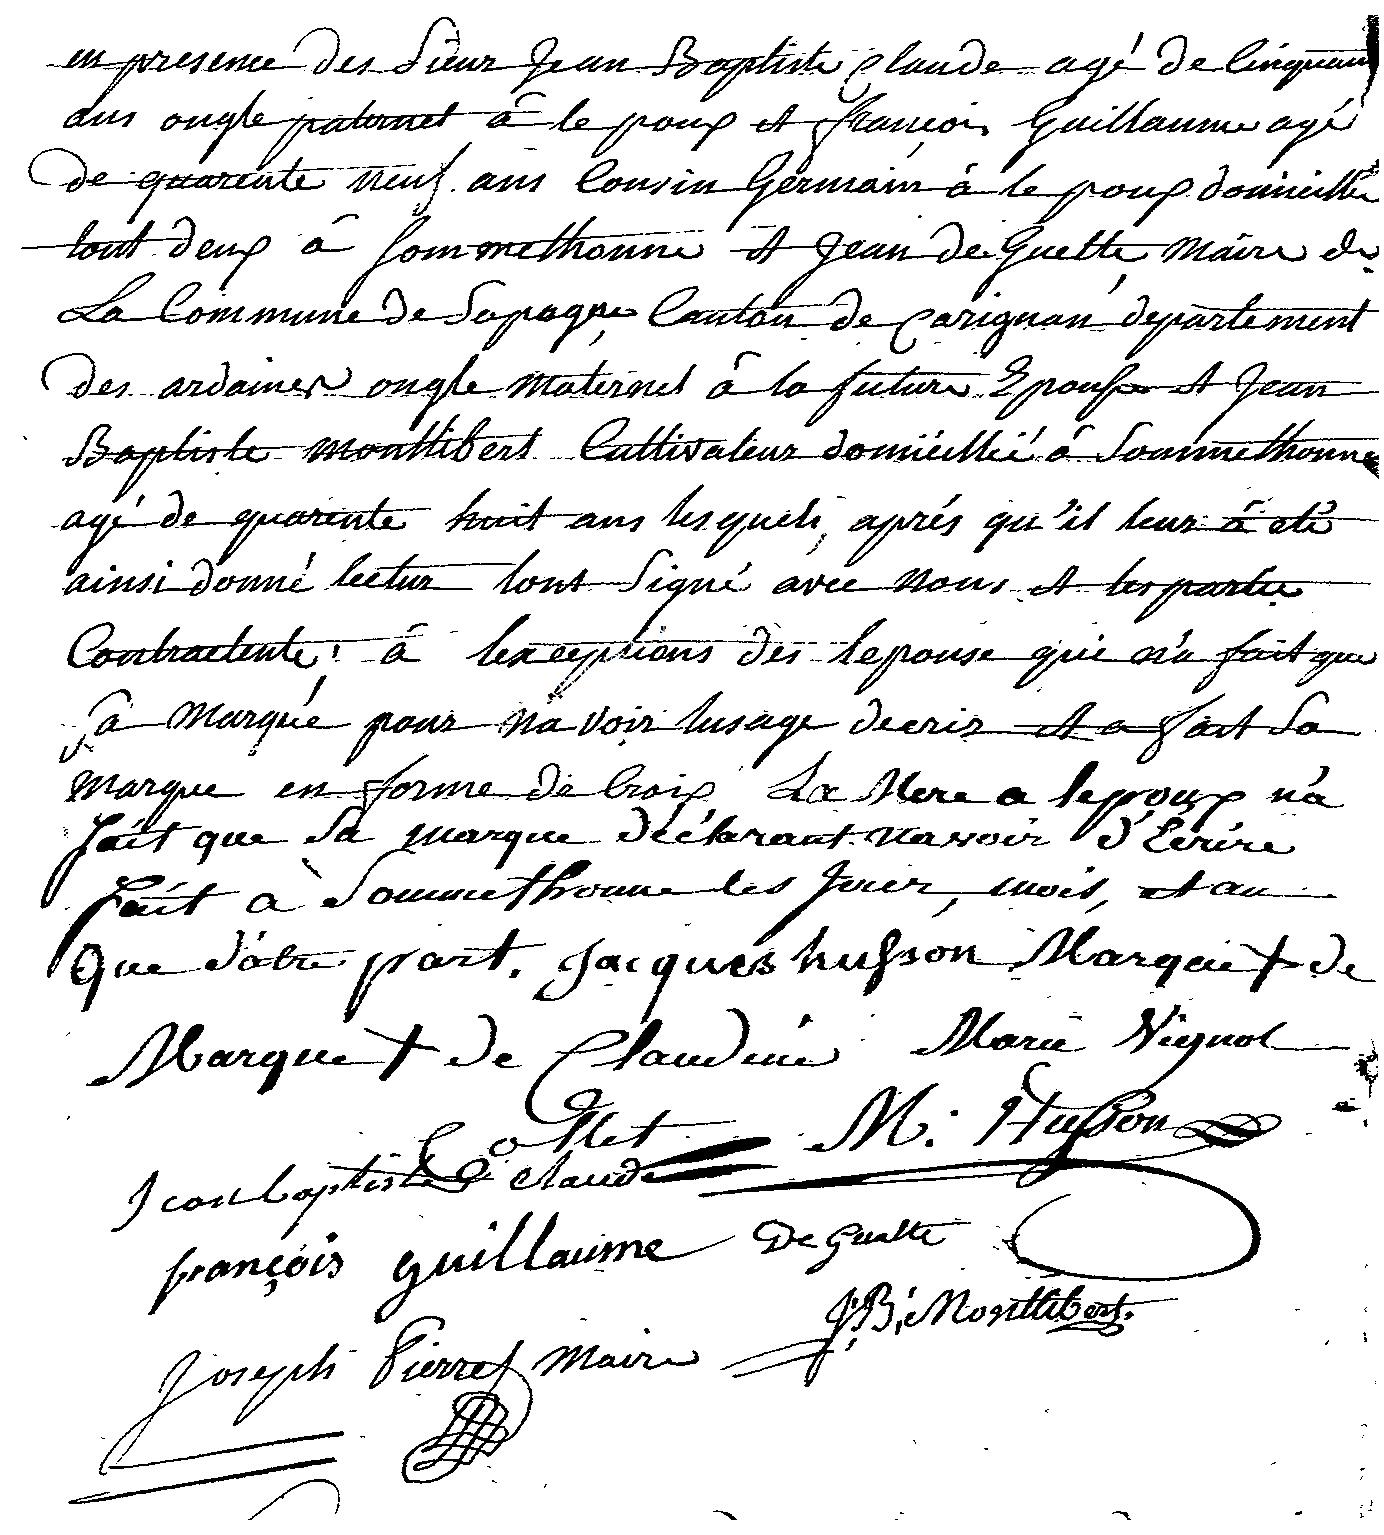 en presence des Sieur Jean Baptiste Claude agé de Cinquante
ans ongle paternel à le poux et françois Guillaume agé
de quarente neuf ans Cousin Germain à le poux domicillié
tout deux à Sommethonne et Jean de Guelte Maire de
La Commune de Sapogne Canton de Carignan departement
des ardaines ongle maternel à la future Epouse et Jean
Baptiste Monttibert Cultivateur domicillié à Sommethonne
agé de quarente huit ans lesquels, aprés qu'il leur à eté
ainsi donné lectur tont Signé avec nous et les partie
Contractente, à lexceptions des lepouse qui n'a fait que
Sa marque pour navoir lusage decrir et a fait Sa
marque en forme de Croix La Mere a lepoux n'a
fait que Sa marque déclarant navoir d'Ecrire
fait à Sommethonne les Jour, mois, et an
que d'àtre part. Jacques husson Marque + de
Marque + de Claudine Marie Vignol
Collet M. Husson
Jean baptiste Claude
françois guillaume De Guelte
J. B. Monttibert.
Joseph Pierret Maire